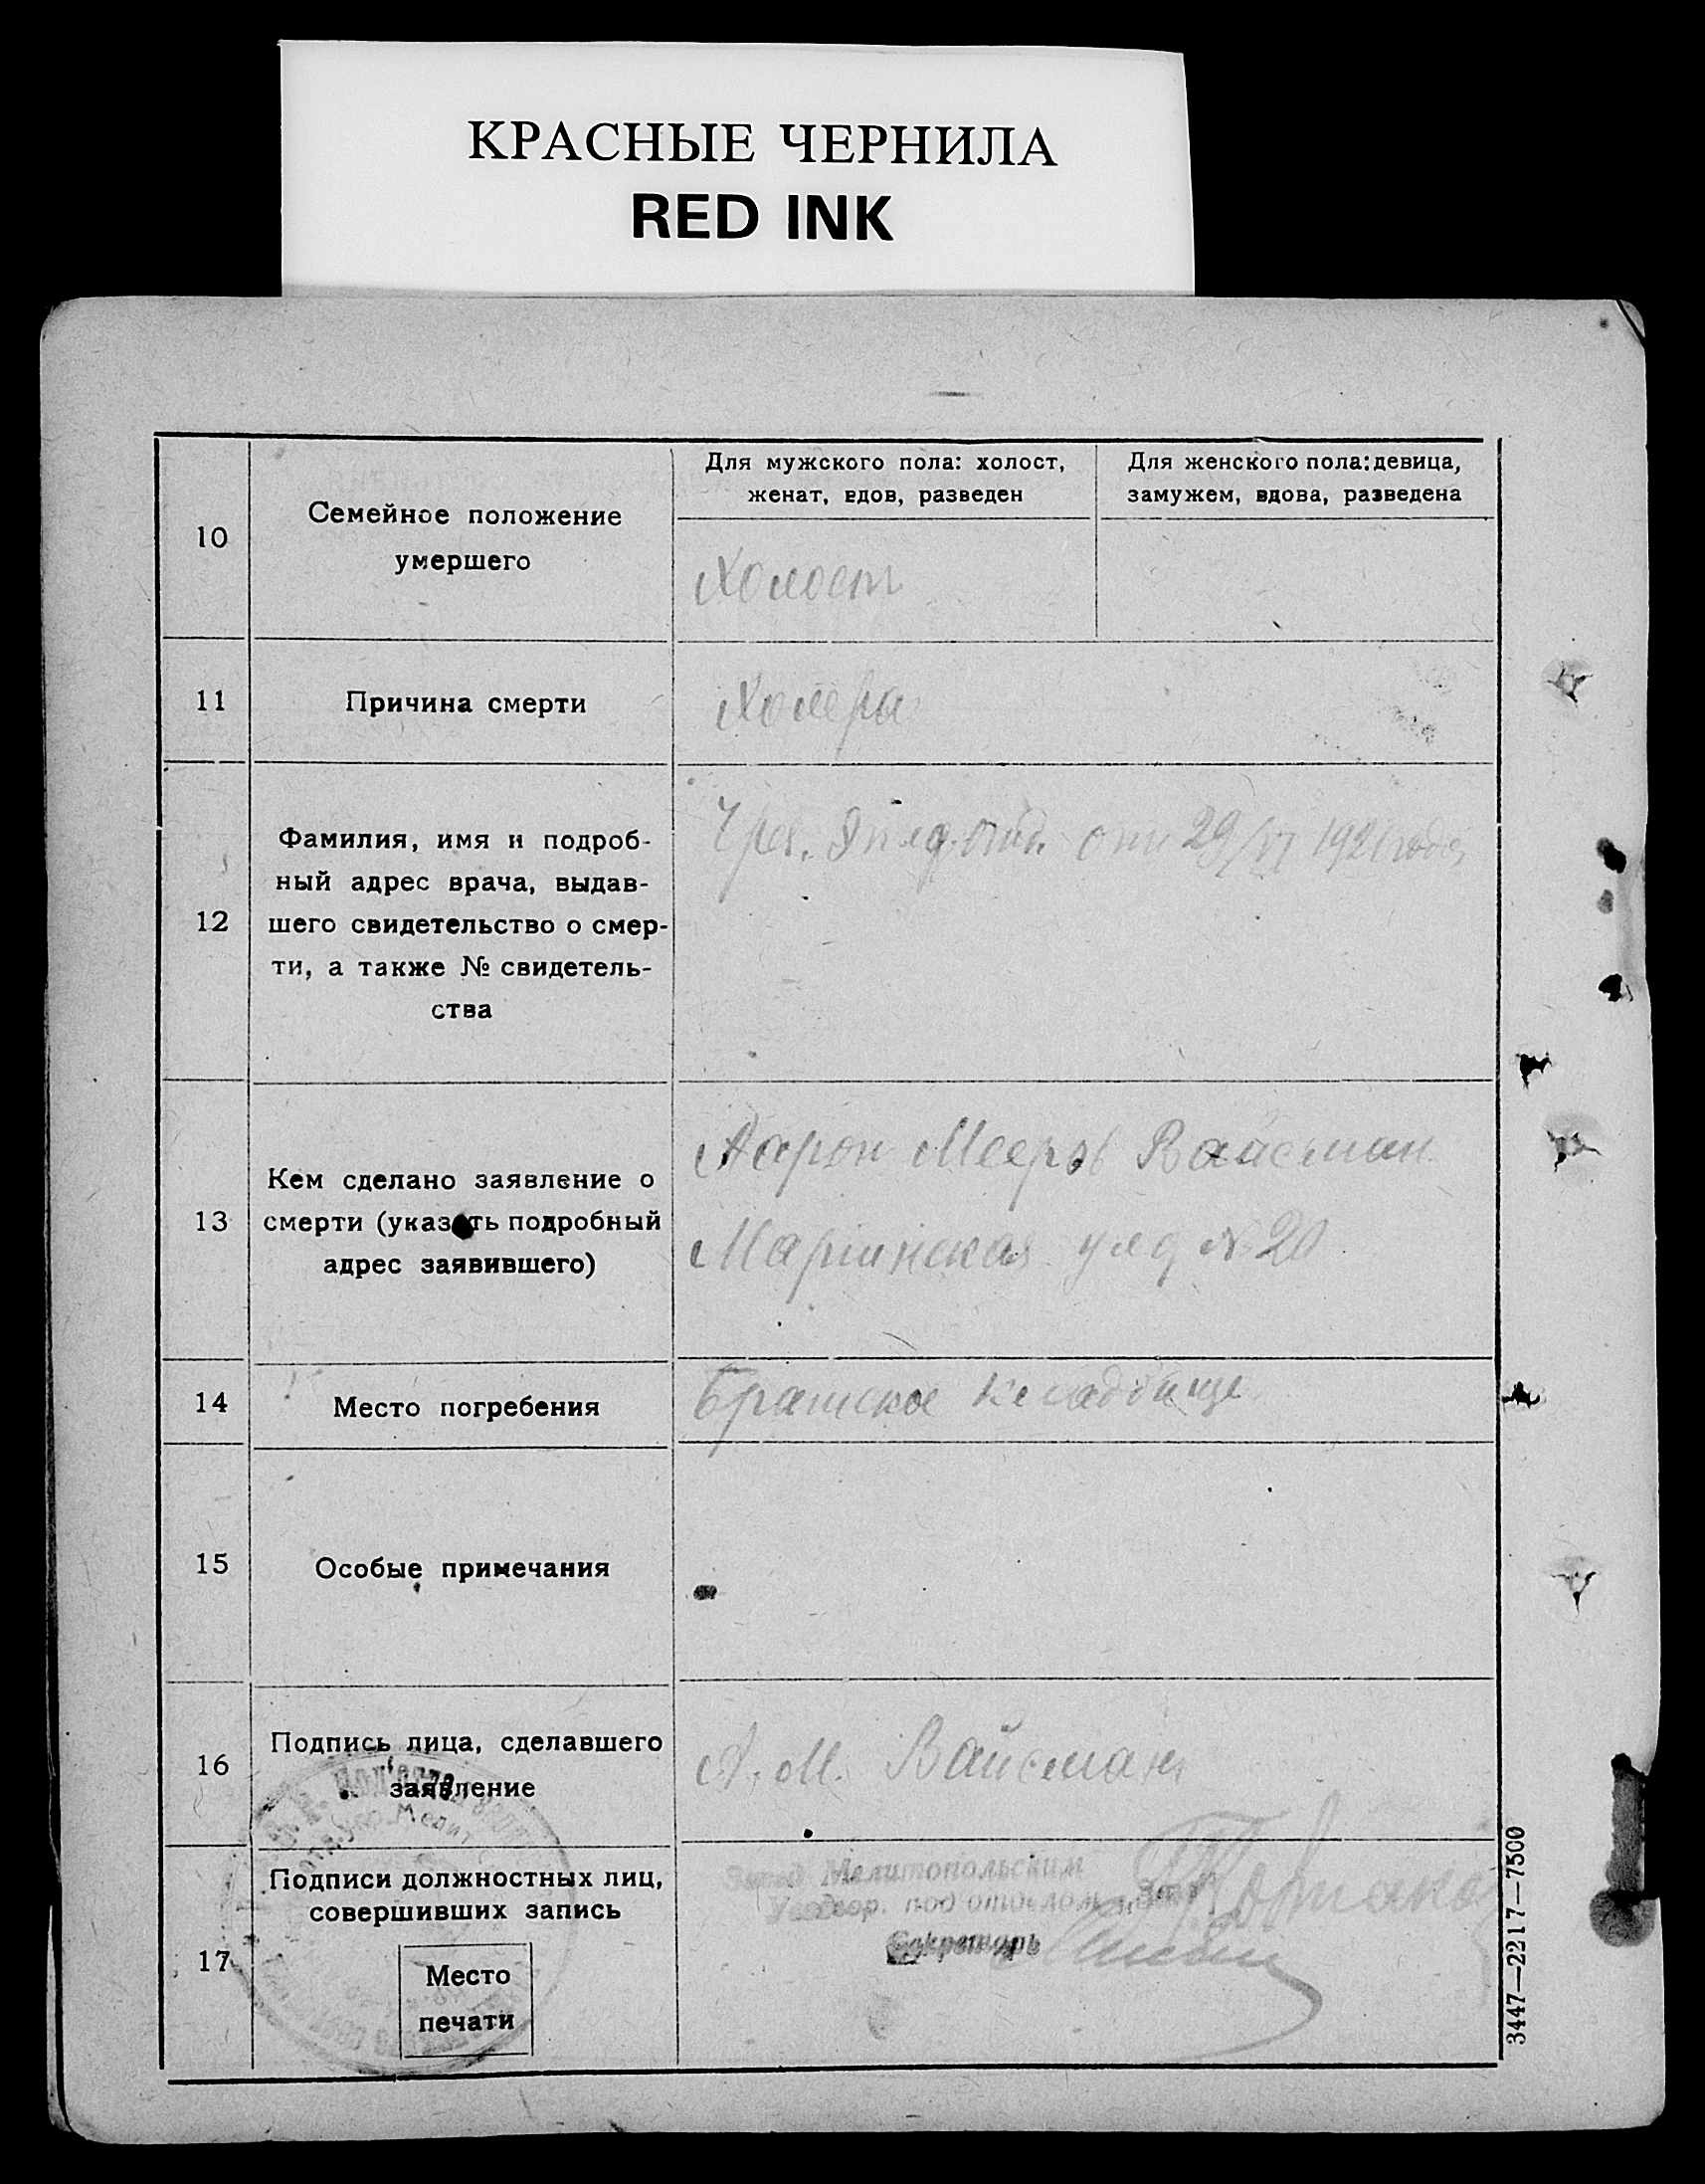 КРАСНЫЕ ЧЕРНИЛА
RED INK
10
Семейное положение
умершего
Для мужского пола: холост,
женат, вдов, разведен
Для женского пола: девица,
замужем, вдова, разведена
Холост
11
Причина смерти
Холера
12
Фамилия, имя и подроб-
ный адрес врача, выдав-
шего свидетельство о смер-
ти, а также № свидетель-
ства
от 29/VI 1921 года
13
Кем сделано заявление о
смерти (указать подробный
адрес заявившего)
Аарон Мееров Вайсман
Мариинская ул д № 20
14
Место погребения
Братское кладбище
15
Особые примечания
16
Подпись лица, сделавшего
заявление
А. М. Вайсман
17
Подписи должностных лиц,
совершивших запись
Место
печати
Завед Мелитопольским
под отделом
Секретарь
3447—2217—7500